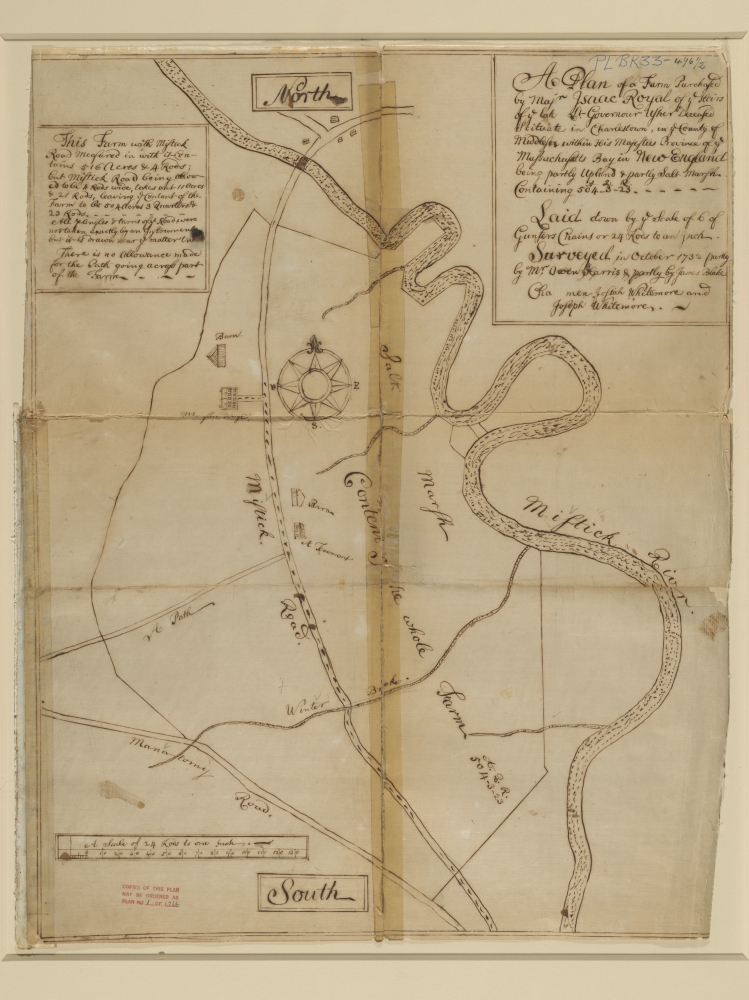 PLBR33-496½
North
A Plan of a Farm Purchased
by Majr Isaac Royal of ye Heirs
of ye late Lt Governour Usher Deceased
Scituate in Charlestown, in ye County of
Middlesex within His Majesties Province of ye
Massachusetts Bay in New England
being partly Upland & partly Salt Marsh
Containing 504..3..23
Laid down by ye Scale of 6 of
Gunters Chains or 24 Rods to an Inch.
Surveyed in October 1732 partly
by Mr Owen Harris & partly by James Blake
Cha men Josiah Whitemore and
Joseph Whitemore.
This Farm with Mistick
Road Measured in with it Con-
tains 516 Acres & 4 Rods;
but Mistick Road being allow-
ed to be 8 Rods wide, takes out 11 Acres
& 21 Rods, leaving ye Content of the
Farm to be 504 Acres 3 Quarters &
23 Rods.
All ye Angles & turns of ye Road were
not taken exactly by an Instrument
but it is drawn near ye matter
There is no Allowance made
for the Path going across part
of the Farm
Barn
E
S
Salt
Marsh
Content
the whole
Farm
A. Q. R.
504-3-23
Mistick
Road.
Barn
A Tenement
Mistick River.
A Path
Winter Brook
Manatomy
Road.
A Scale of 24 Rods to an Inch.
South
COPIES OF THIS PLAN
MAY BE ORDERED AS
PLAN NO 1 OF